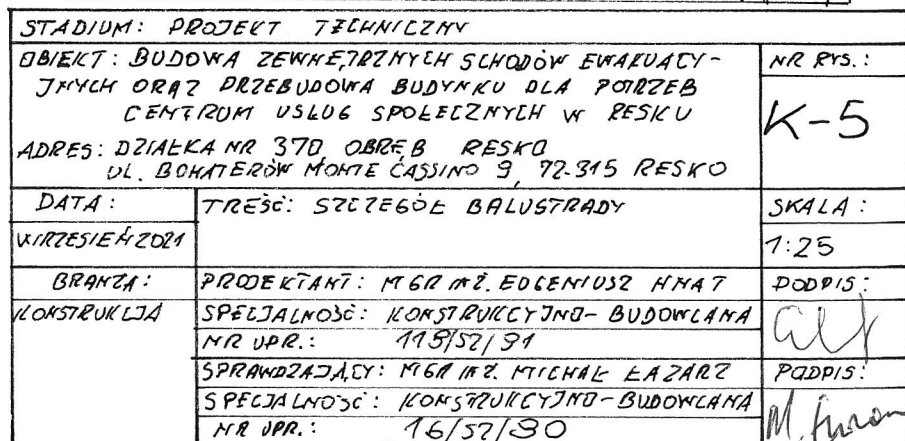 STADIUM: PROJEKT TECHNICZNY
OBIEKT: BUDOWA ZEWNĘTRZNYCH SCHODÓW EWAKUACY-
JNYCH ORAZ PRZEBUDOWA BUDYNKU DLA POTRZEB
CENTRUM USŁUG SPOŁECZNYCH W RESKU
ADRES: DZIAŁKA NR 370 OBRĘB RESKO
UL. BOHATERÓW MONTE CASSINO 9, 72-315 RESKO
NR RYS.:
K-5
DATA:
WRZESIEŃ 2021
TREŚĆ: SZCZEGÓŁ BALUSTRADY
SKALA:
1:25
BRANŻA:
KONSTRUKCJA
PROJEKTANT: MGR INŻ. EUGENIUSZ HNAT
PODPIS:
SPECJALNOŚĆ: KONSTRUKCYJNO-BUDOWLANA
NR UPR.: 119/SZ/91
SPRAWDZAJĄCY: MGR INŻ. MICHAŁ ŁAZARZ
PODPIS:
SPECJALNOŚĆ: KONSTRUKCYJNO-BUDOWLANA
NR UPR.: 16/SZ/90